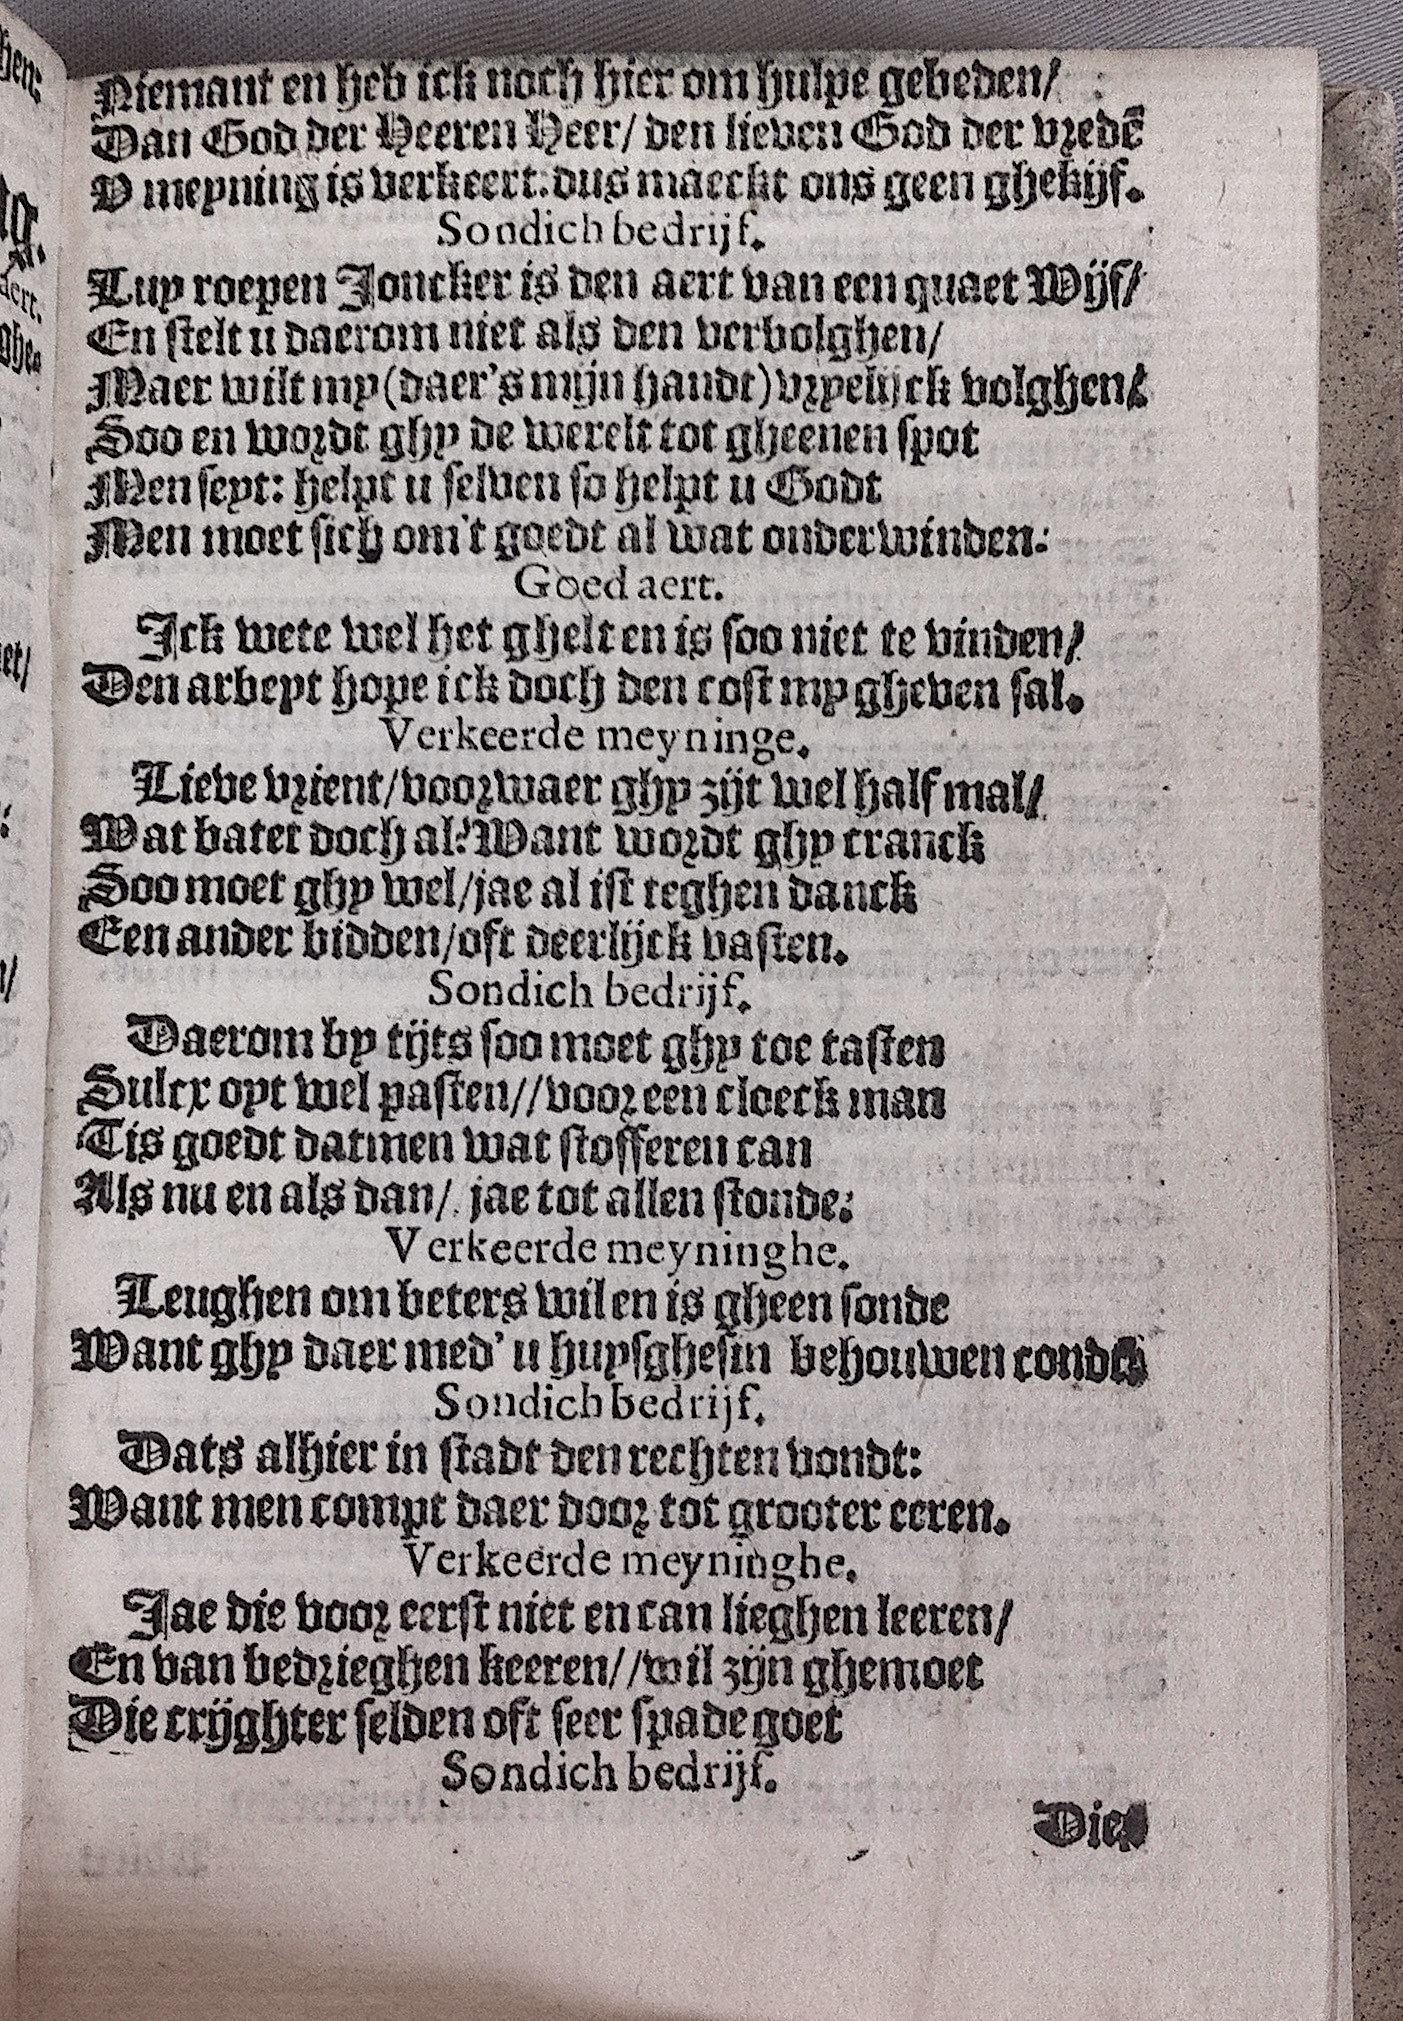 Niemant en heb ick noch hier om hulpe gebeden/
Dan God der Heeren Heer/ den lieven God der vredē
V meyning is verkeert: dus maeckt ons geen ghekijf.
Sondich bedrijf.
Luy roepen Joncker is den aert van een quaet Wijf/
En stelt u daerom niet als den verbolghen/
Maer wilt my (daer's mijn handt) vryelijck volghen/
Soo en wordt ghy de werelt tot gheenen spot
Men seyt: helpt u selven so helpt u Godt
Men moet sich om't goedt al wat onderwinden:
Goed aert.
Ick wete wel het ghelt en is soo niet te vinden/
Den arbeyt hope ick doch den cost my gheven sal.
Verkeerde meyninge.
Lieve vrient/ voorwaer ghy zijt wel half mal/
Wat batet doch al? Want wordt ghy cranck
Soo moet ghy wel/ jae al ist teghen danck
Een ander bidden/ oft deerlijck vasten.
Sondich bedrijf.
Daerom by tijts soo moet ghy toe tasten
Sulcx oyt wel pasten// voor een cloeck man
Tis goedt datmen wat stofferen can
Als nu en als dan/ jae tot allen stonde:
Verkeerde meyninghe.
Leughen om beters wil en is gheen sonde
Want ghy daer med' u huysghesin behouwen
Sondich bedrijf.
Dats alhier in stadt den rechten vondt:
Want men compt daer door tot grooter eeren.
Verkeerde meyninghe.
Jae die voor eerst niet en can lieghen leeren/
En van bedrieghen keeren// wil zijn ghemoet
Die crijghter selden oft seer spade goet
Sondich bedrijf.
Die